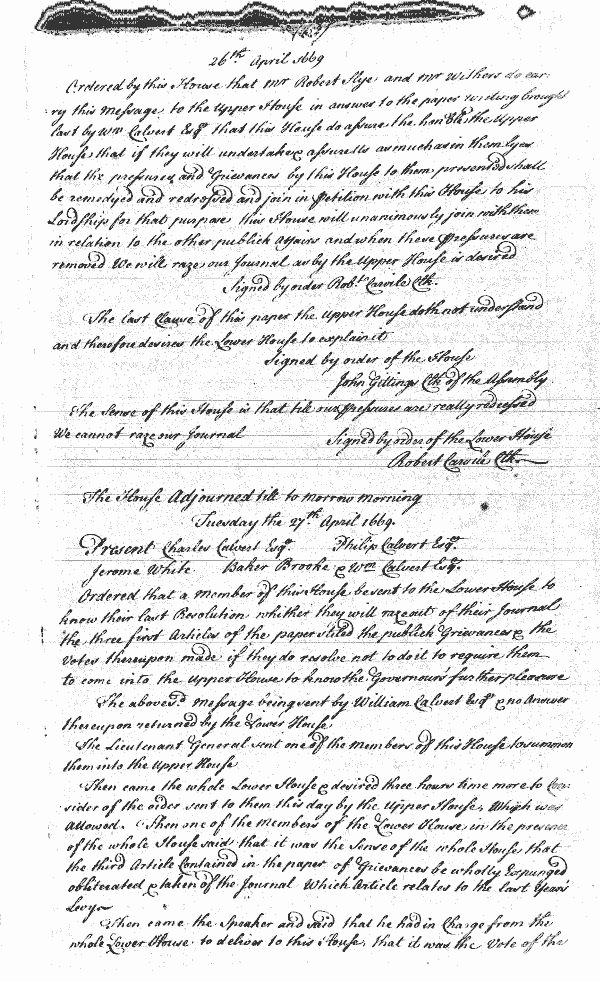 26th April 1669
Ordered by this House that Mr Robert Slye and Mr Withers do car-
ry this Message to the Upper House in answer to the paper writing brought
last by Wm Calvert Esqr that this House do assure the honble the Upper
House that if they will undertake & assure Us as much as in them Lyes
that the pressures and Grievances by this House to them presented shall
be remedyed and redressed and join in Petition with this House to his
Lordship for that purpose this House will unanimously join with them
in relation to the other publick Affairs and when these Pressures are
removed We will raze our Journal as by the Upper House is desired
Signed by order Robt Carvile Clk.
The last Clause of this paper the Upper House doth not understand
and therefore desires the Lower House to explain it
Signed by order of the House
John Gittings Clk of the Assembly
The Sense of this House is that till our Pressures are really redressed
We cannot raze our Journal
Signed by order of the Lower House
Robert Carvile Clk.
The House Adjourned till to morrow morning
Tuesday the 27th April 1669.
Present Charles Calvert Esqr. Philip Calvert Esqr.
Jerome White Baker Brooke & Wm Calvert Esqr.
Ordered that a member of this House be sent to the Lower House to
know their last Resolution whither they will raze out of their Journal
the three first Articles of the paper stiled the publick Grievances & the
Votes thereupon made if they do resolve not to do it to require them
to come into the Upper House to know the Governours further pleasure
The abovesd Message being sent by William Calvert Esqr & no Answer
thereupon returned by the Lower House
The Lieutenant General sent one of the Members of this House to summon
them into the Upper House
Then came the whole Lower House & desired three hours time more to Con-
sider of the order sent to them this day by the Upper House, Which was
allowed. Then one of the Members of the Lower House in the presence
of the whole House said that it was the Sense of the whole House that
the third Article Contained in the paper of Grievances be wholly Expunged
obliterated & taken of the Journal Which Article relates to the last Years
Levye
Then came the Speaker and said that he had in Charge from the
whole Lower House to deliver to this House, that it was the Vote of the